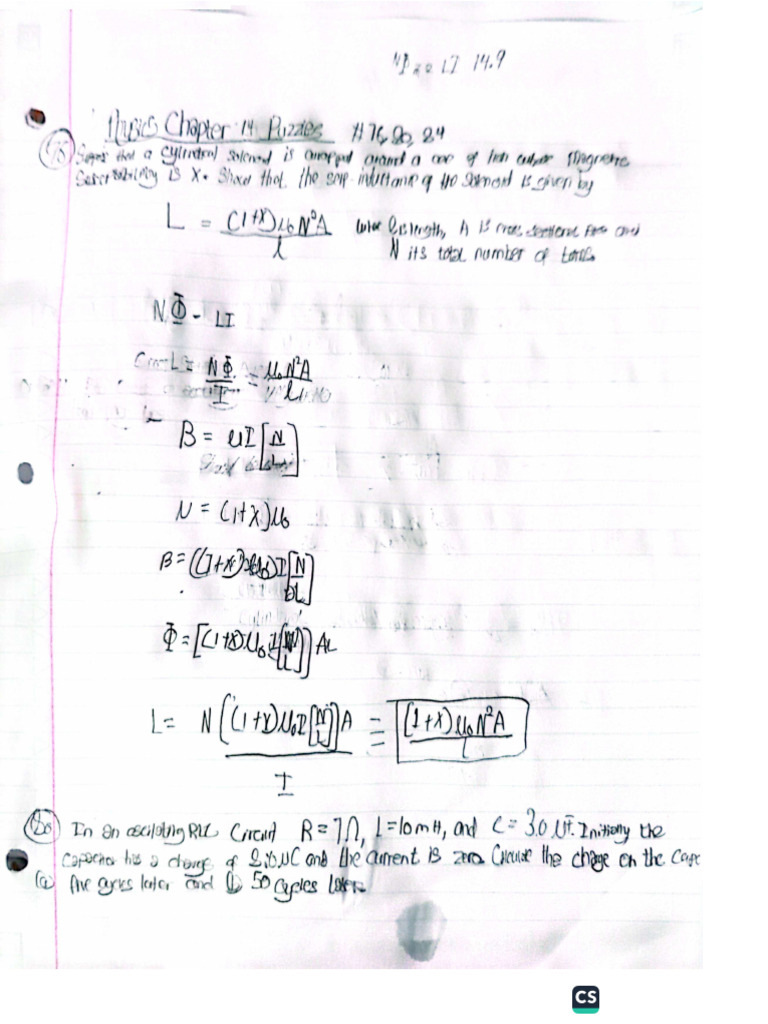 14.9
Physics Chapter 14 Puzzles #76, 80, 84
that a solenoid is wrapped around a core of magnetic
is X. Show that the self-inductance of the solenoid is given by
L = (1+X)μ₀N²A / l where l is length, A is cross sectional and
N its total number of
NΦ = LI
L = NΦ / I = μ₀N²A / l
B = μI [N / L]
μ = (1+X)μ₀
B = ((1+X)μ₀)I[N / L]
Φ = [(1+X)μ₀I[N / L]]A
L = N((1+X)μ₀I[N / L])A / I = (1+X)μ₀N²A / L
80 In an oscillating RLC Circuit R = 7Ω, L = 10mH, and C = 3.0 μF. Initially the
capacitor has a charge of μC and the current is zero. the charge on the
(a) five cycles later and (b) 50 cycles later.
CS